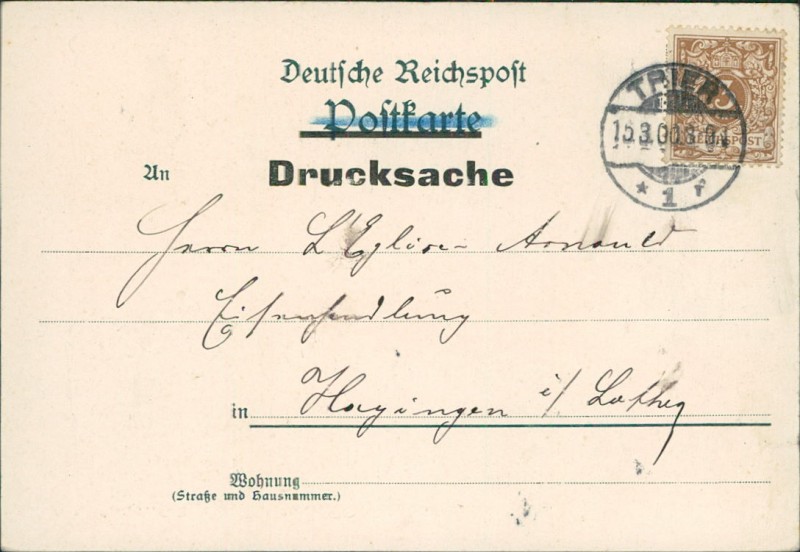 Deutsche Reichspost
Postkarte
TRIER
15.3.00.8-9V
* 1 r
3
REICHSPOST
An
Drucksache
Herrn L'Eglise-Arnould
Eisenhandlung
in Hayingen i/ Lothrg
Wohnung
(Straße und Hausnummer.)